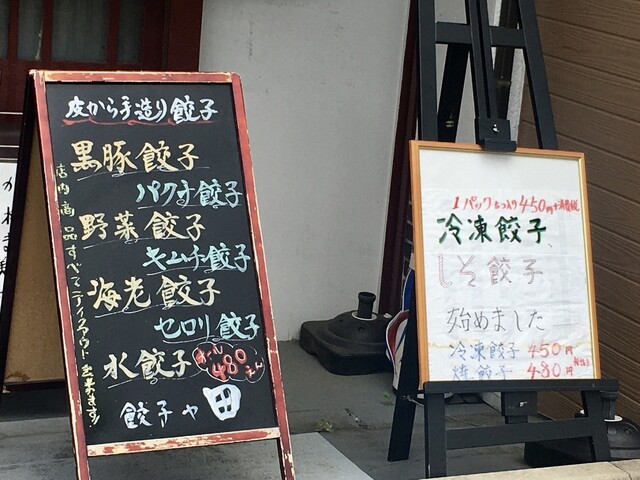 皮から手造り餃子
黒豚餃子
パクチ餃子
野菜餃子
キムチ餃子
海老餃子
セロリ餃子
水餃子
オール
480
えん
餃子や 田
店内商品すべてテイクアウト出来ます!
1パック6つ入り450円+消費税
冷凍餃子、
しそ餃子
始めました
冷凍餃子 450円
焼餃子 480円